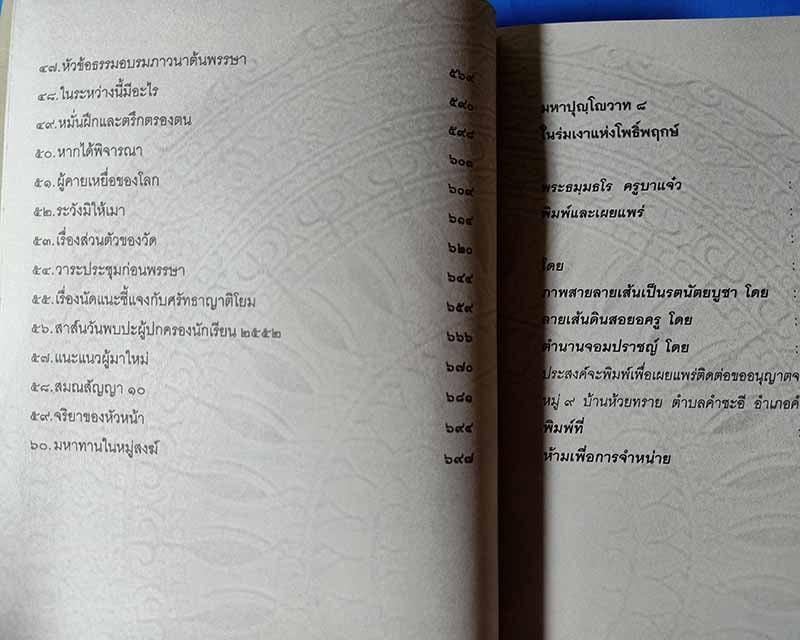 ๔๗.หัวข้อธรรมอบรมภาวนาต้นพรรษา ๕๖๙
๔๘.ในระหว่างนี้มีอะไร ๕๙๐
๔๙.หมั่นฝึกและตรึกตรองตน ๕๙๘
๕๐.หากได้พิจารณา ๖๐๓
๕๑.ผู้คายเหยื่อของโลก ๖๐๙
๕๒.ระวังมิให้เมา ๖๑๔
๕๓.เรื่องส่วนตัวของวัด ๖๒๐
๕๔.วาระประชุมก่อนพรรษา ๖๔๔
๕๕.เรื่องนัดแนะชี้แจงกับศรัทธาญาติโยม ๖๕๙
๕๖.สาส์นวันพบปะผู้ปกครองนักเรียน ๒๕๕๒ ๖๖๖
๕๗.แนะแนวผู้มาใหม่ ๖๗๐
๕๘.สมณสัญญา ๑๐ ๖๘๑
๕๙.จริยาของหัวหน้า ๖๙๔
๖๐.มหาทานในหมู่สงฆ์ ๖๙๗
มหาปุญฺโญวาท ๘
ในร่มเงาแห่งโพธิ์พฤกษ์
พระธมฺมธโร ครูบาแจ๋ว :
พิมพ์และเผยแพร่ :
:
โดย :
ภาพสายลายเส้นเป็นรตนัตยบูชา โดย :
ลายเส้นดินสอยอครู โดย :
ตำนานจอมปราชญ์ โดย :
ประสงค์จะพิมพ์เพื่อเผยแพร่ติดต่อขออนุญาตจ
หมู่ ๙ บ้านห้วยทราย ตำบลคำชะอี อำเภอคำ
พิมพ์ที่ :
ห้ามเพื่อการจำหน่าย